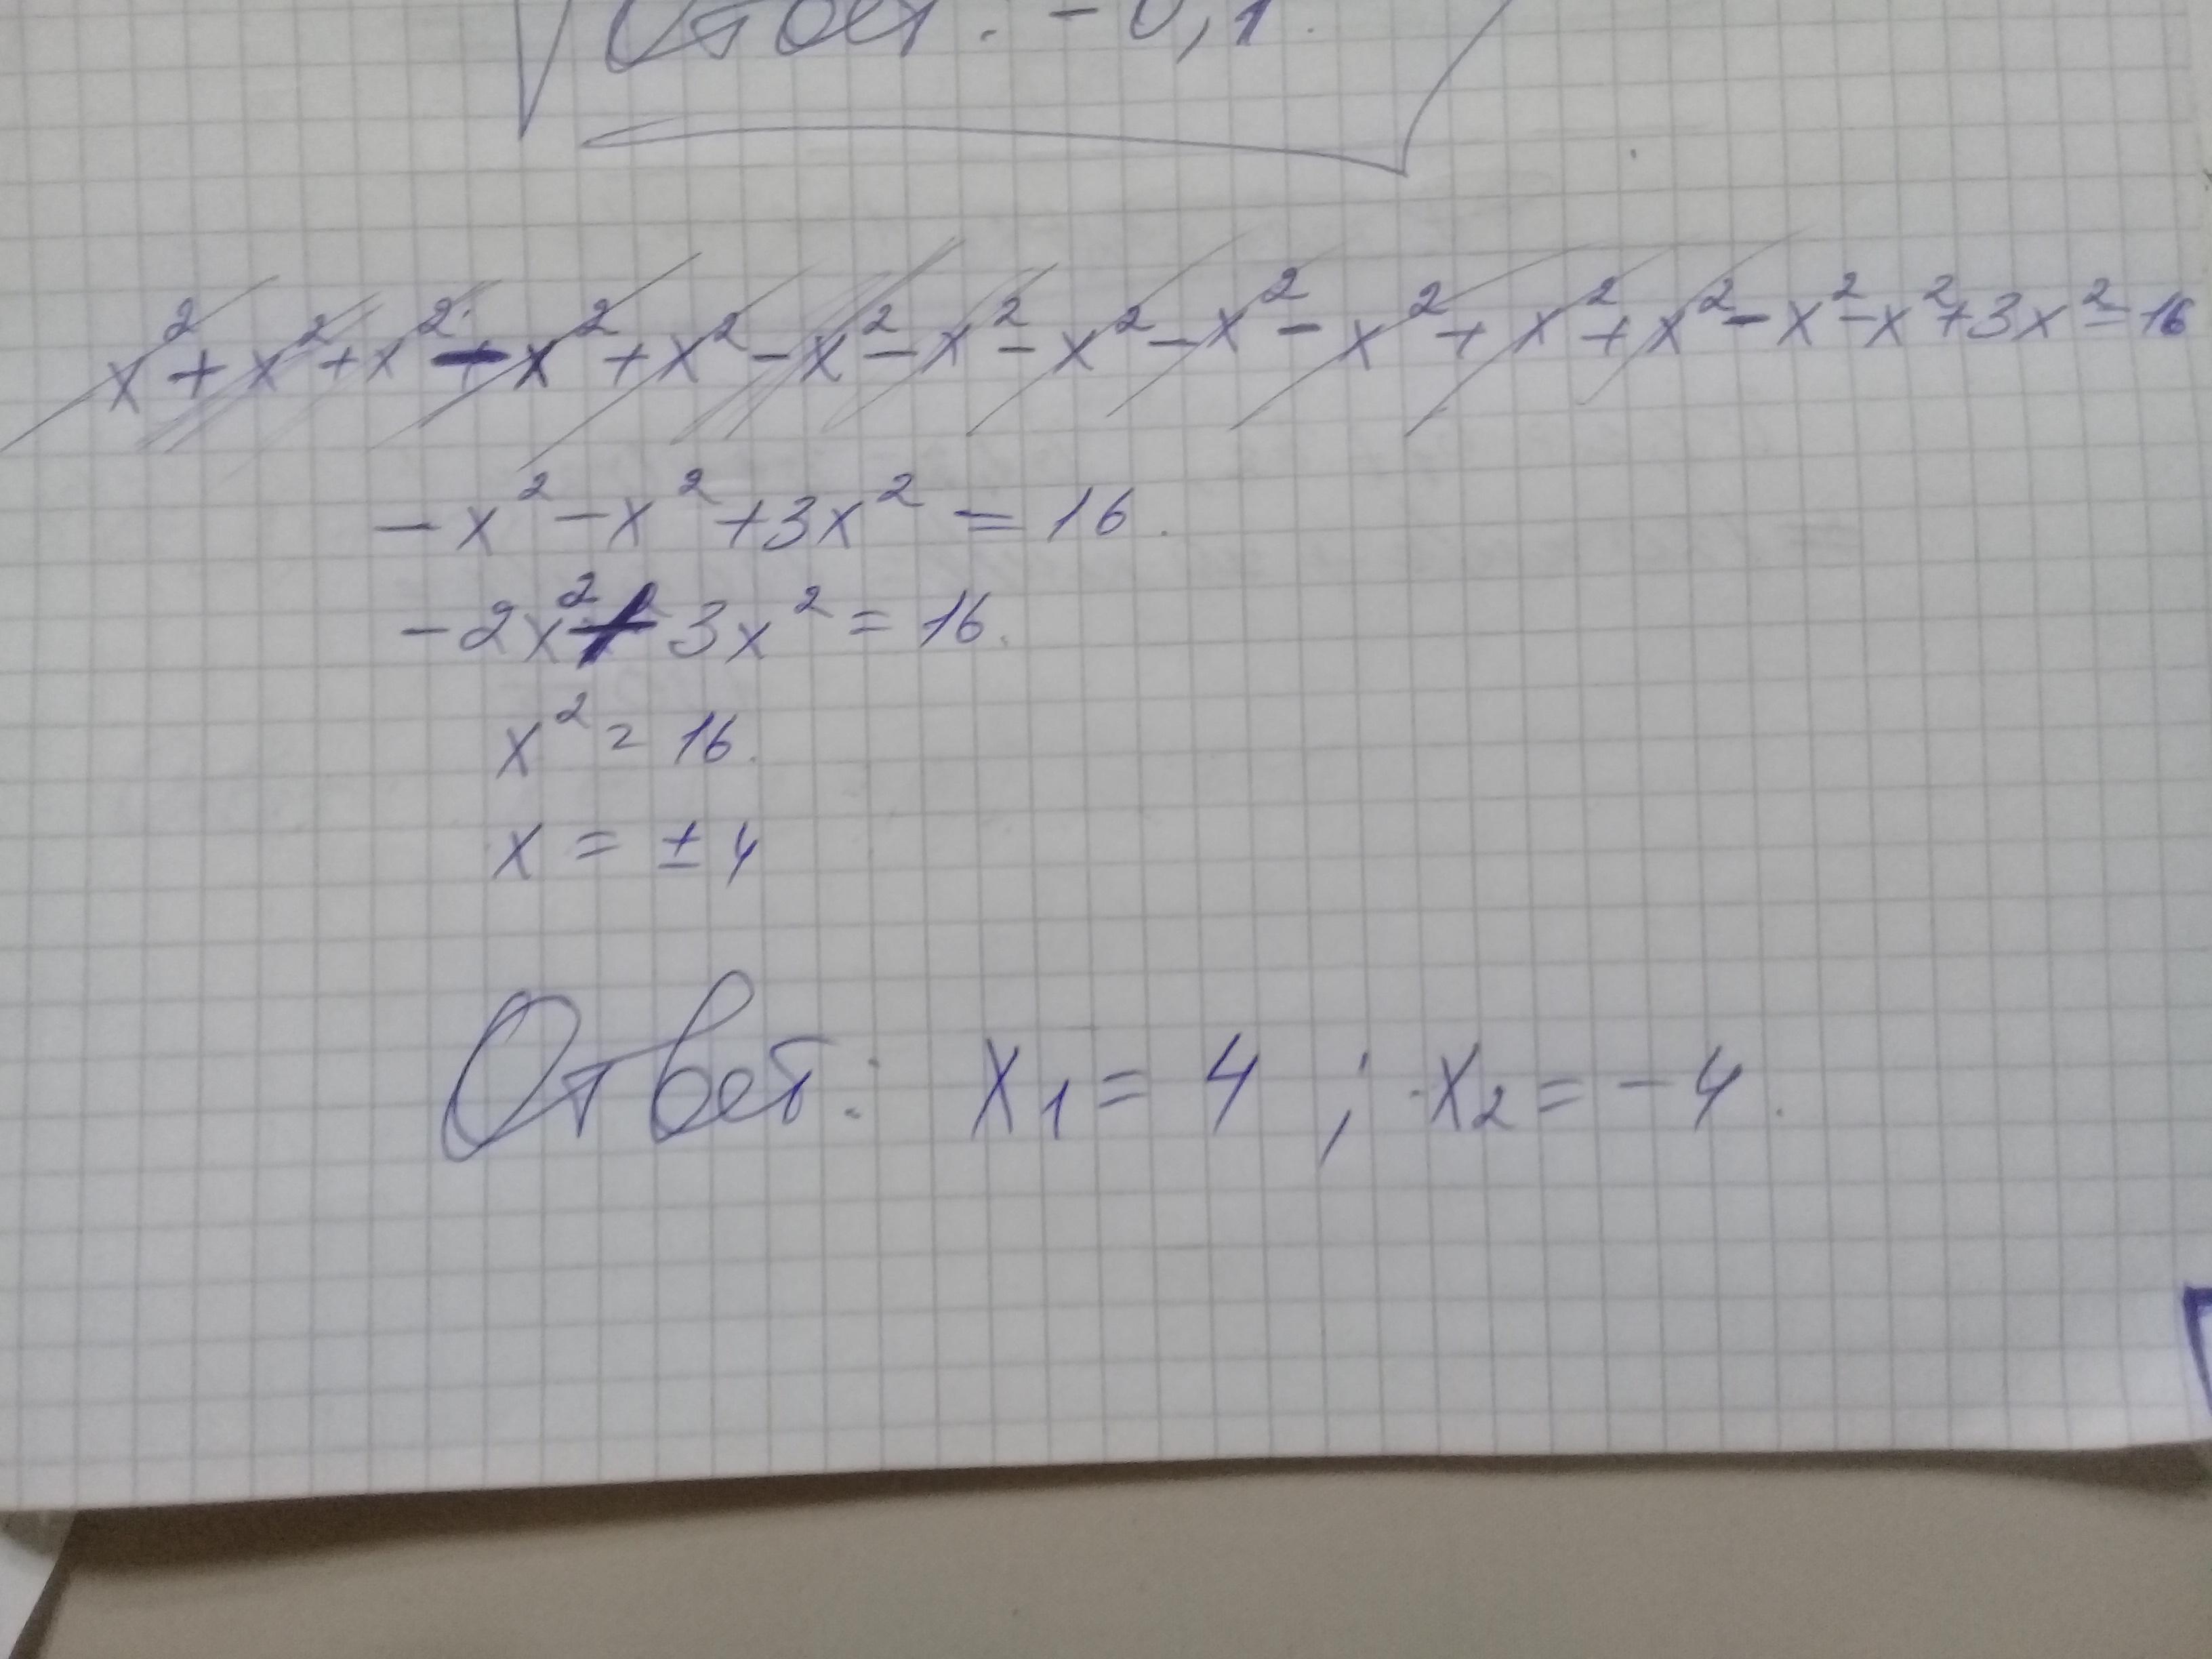 Ответ: -0,1.
x² + x² + x² - x² + x² - x² - x² - x² - x² - x² + x² + x² - x² - x² + 3x² = 16
-x² - x² + 3x² = 16.
-2x² + 3x² = 16.
x² = 16.
x = ± 4
Ответ: x₁ = 4 ; x₂ = -4.